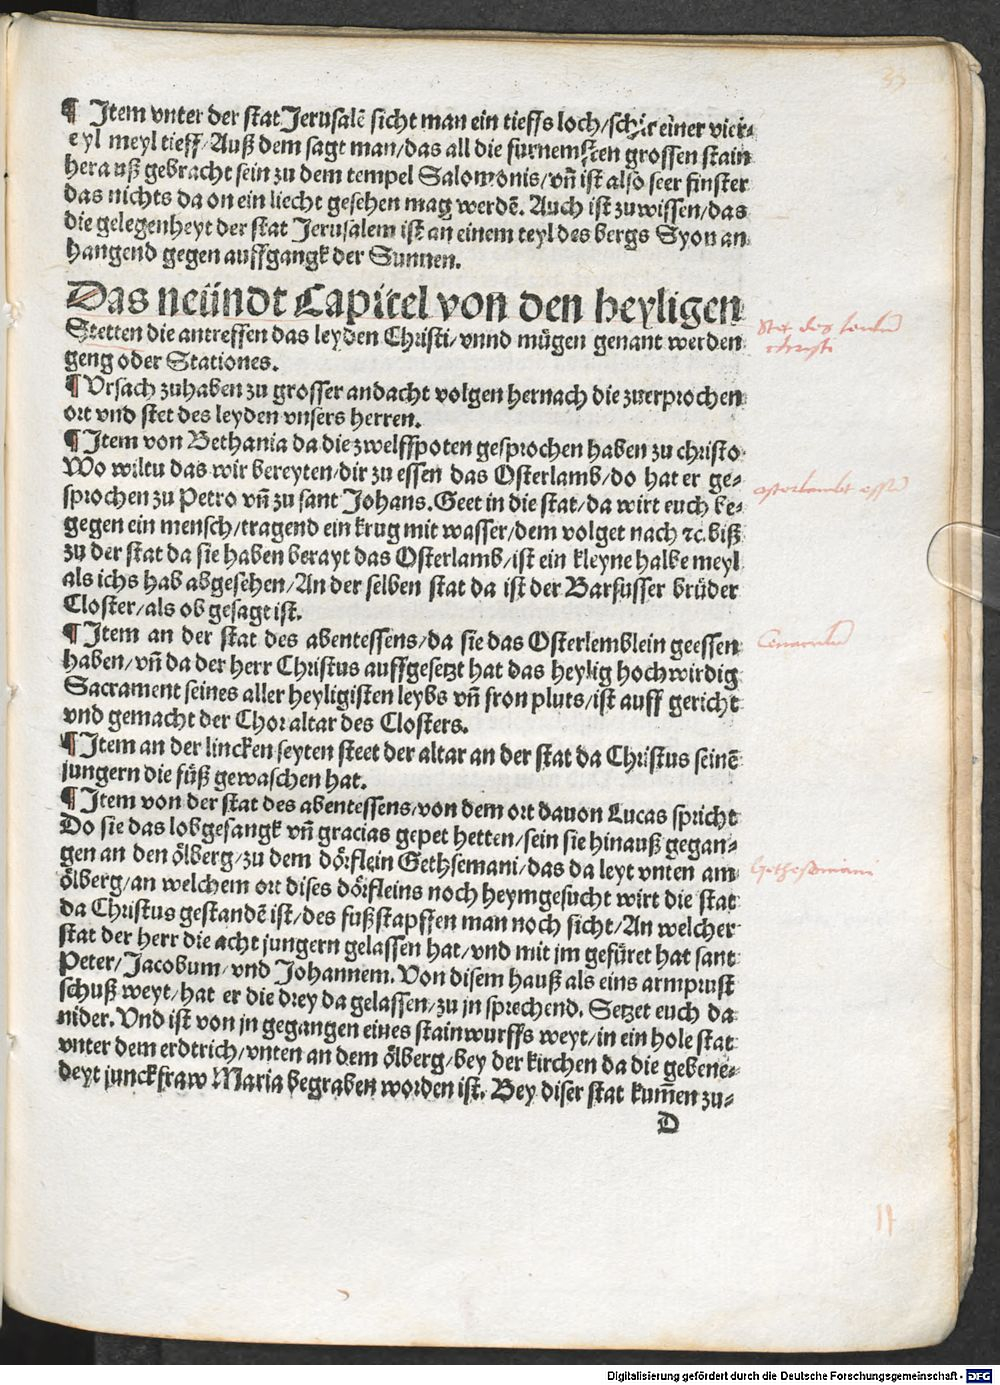 33
¶ Item vnter der stat Jerusalē sicht man ein tieffs loch/schir einer vier⸗
eyl meyl tieff/Auß dem sagt man/das all die furnemsten grossen stain
herauß gebracht sein zu dem tempel Salomonis/vn̄ ist also seer finster
das nichts da on ein liecht gesehen mag werdē. Auch ist zu wissen/das
die gelegenheyt der stat Jerusalem ist an einem teyl des bergs Syon an
hangend gegen auffgangk der Sunnen.
Das neündt Capitel von den heyligen
Stetten die antreffen das leyden Christi/vnnd mügen genant werden
geng oder Stationes.
¶ Vrsach zuhaben zu grosser andacht volgen hernach die zuerprochen
ort vnd stet des leyden vnsers herren.
¶ Item von Bethania da die zwelffpoten gesprochen haben zu christo
Wo wiltu das wir bereyten/dir zu essen das Osterlamb/do hat er ge⸗
sprochen zu Petro vn̄ zu sant Johans. Geet in die stat/da wirt euch be⸗
gegen ein mensch/tragend ein krug mit wasser/dem volget nach ꝛc. biß
zu der stat da sie haben berayt das Osterlamb/ist ein kleyne halbe meyl
als ichs hab abgesehen/An der selben stat da ist der Barfusser brüder
Closter/als ob gesagt ist.
¶ Item an der stat des abentessens/da sie das Osterlemblein geessen
haben/vn̄ da der herr Christus auffgesetzt hat das heylig hochwirdig
Sacrament seines aller heyligisten leybs vn̄ fron pluts/ist auff gericht
vnd gemacht der Chor altar des Closters.
¶ Item an der lincken seyten steet der altar an der stat da Christus seinē
jungern die füß gewaschen hat.
¶ Item von der stat des abentessens/von dem ort dauon Lucas spricht
Do sie das lobgesangk vn̄ gracias gepet hetten/sein sie hinauß gegan⸗
gen an den ölberg/zu dem dörflein Gethsemani/das da leyt vnten am
ölberg/an welchem ort dises dörfleins noch heymgesucht wirt die stat
da Christus gestandē ist/des fußstapffen man noch sicht/An welcher
stat der herr die acht jungern gelassen hat/vnd mit jm gefüret hat sant
Peter/Jacobum/vnd Johannem. Von disem hauß als eins armprust
schuß weyt/hat er die drey da gelassen/zu jn sprechend. Setzet euch da
nider. Vnd ist von jn gegangen eines stainwurffs weyt/in ein hole stat
vnter dem erdtrich/vnten an dem ölberg/bey der kirchen da die gebene⸗
deyt junckfraw Maria begraben worden ist. Bey diser stat kum̄en zu⸗
D
Christi
Gethsemani
Digitalisierung gefördert durch die Deutsche Forschungsgemeinschaft - DFG